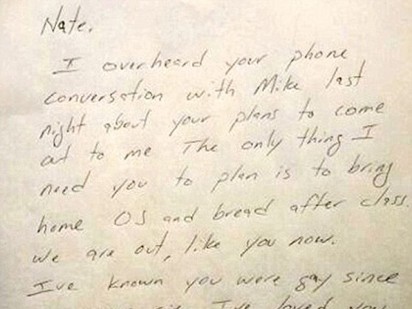 Nate.
I overheard your phone
conversation with Mike last
night about your plans to come
out to me The only thing I
need you to plan is to bring
home OJ and bread after class.
We are out, like you now.
I've known you were gay since
I've loved you